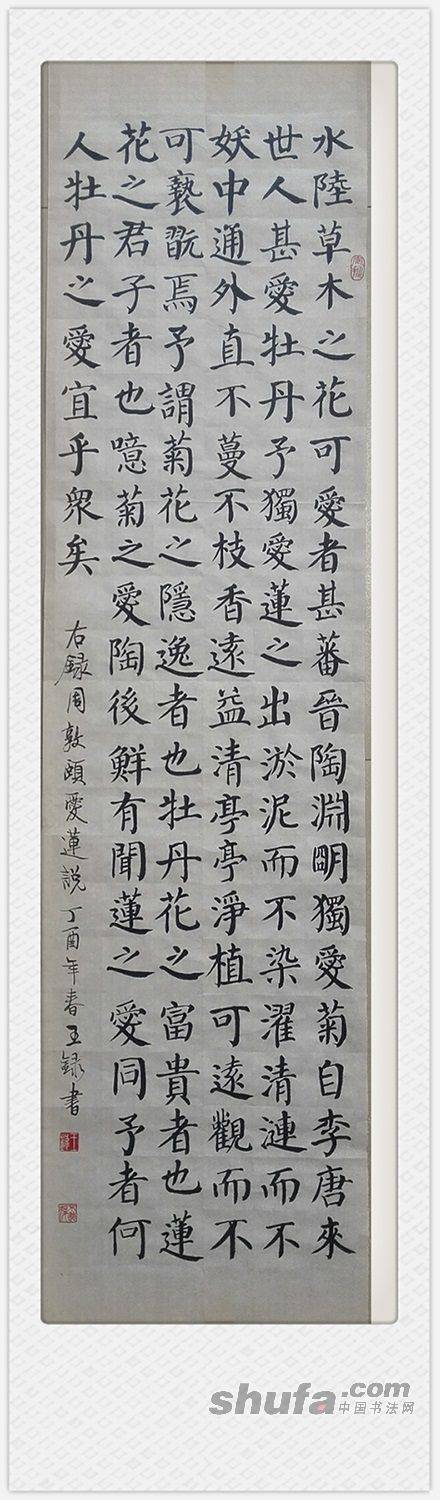 水陸草木之花可愛者甚蕃晉陶淵眀獨愛菊自李唐來
世人甚愛牡丹予獨愛蓮之出淤泥而不染濯清漣而不
妖中通外直不蔓不枝香遠益清亭亭淨植可遠觀而不
可褻翫焉予謂菊花之隱逸者也牡丹花之富貴者也蓮
花之君子者也噫菊之愛陶後鮮有聞蓮之愛同予者何
人牡丹之愛宜乎衆矣
右録周敦頤愛蓮説丁酉年春王録書
shufa.com
中国书法网